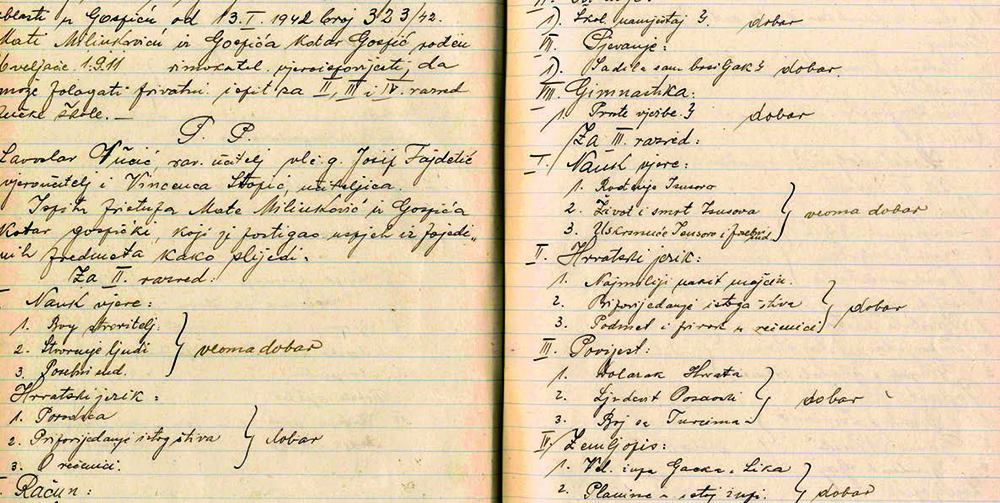 oblasti u Gospiću od 13. I. 1942 broj 323/42.
Mati Milinkoviću iz Gospića kotar Gospić rođen
1.9.11 rimokatol. vjeroispovijesti, da
može polagati privatni ispit za II, III i IV. razred
pučke škole. —
T P.
Lavoslav Vučić, rav. učitelj vlč. g. Josip Fajdetić
vjeroučitelj i Vincenca Stopić, učiteljica.
Ispitu pristupa Mate Milinković iz Gospića
kotar gospićki, koji je postigao uspjeh iz pojedi„
nih predmeta kako slijedi.
Za II. razred:
Nauk vjere:
1. Bog stvoritelj.
2. Stvorenje ljudi } veoma dobar
3. Posebni sud.
Hrvatski jezik:
1. Porodica
2. Pripovijedanje istog štiva } dobar
3. O rečenici.
Račun:
1). Škol. namještaj } dobar
VII. Pjevanje:
1). Sadila sam bosiljak } dobar.
VIII. Gimnastika:
1. Proste vježbe } dobar
Za III. razred:
I. Nauk vjere:
1. Rođenje Isusovo
2. Život i smrt Isusova } veoma dobar
3. Uskrsnuće Isusovo i
II. Hrvatski jezik:
1. Najmiliji
2. Pripovijedanje istoga štiva } dobar
3. Podmet i prirok u rečenici
III. Povijest:
1. Dolazak Hrvata
2. Ljudevit Posavski } dobar
3. Boj sa Turcima
IV. Zemljopis:
1. Vel. župa Gacka i Lika
2. Planine u istoj župi. } dobar